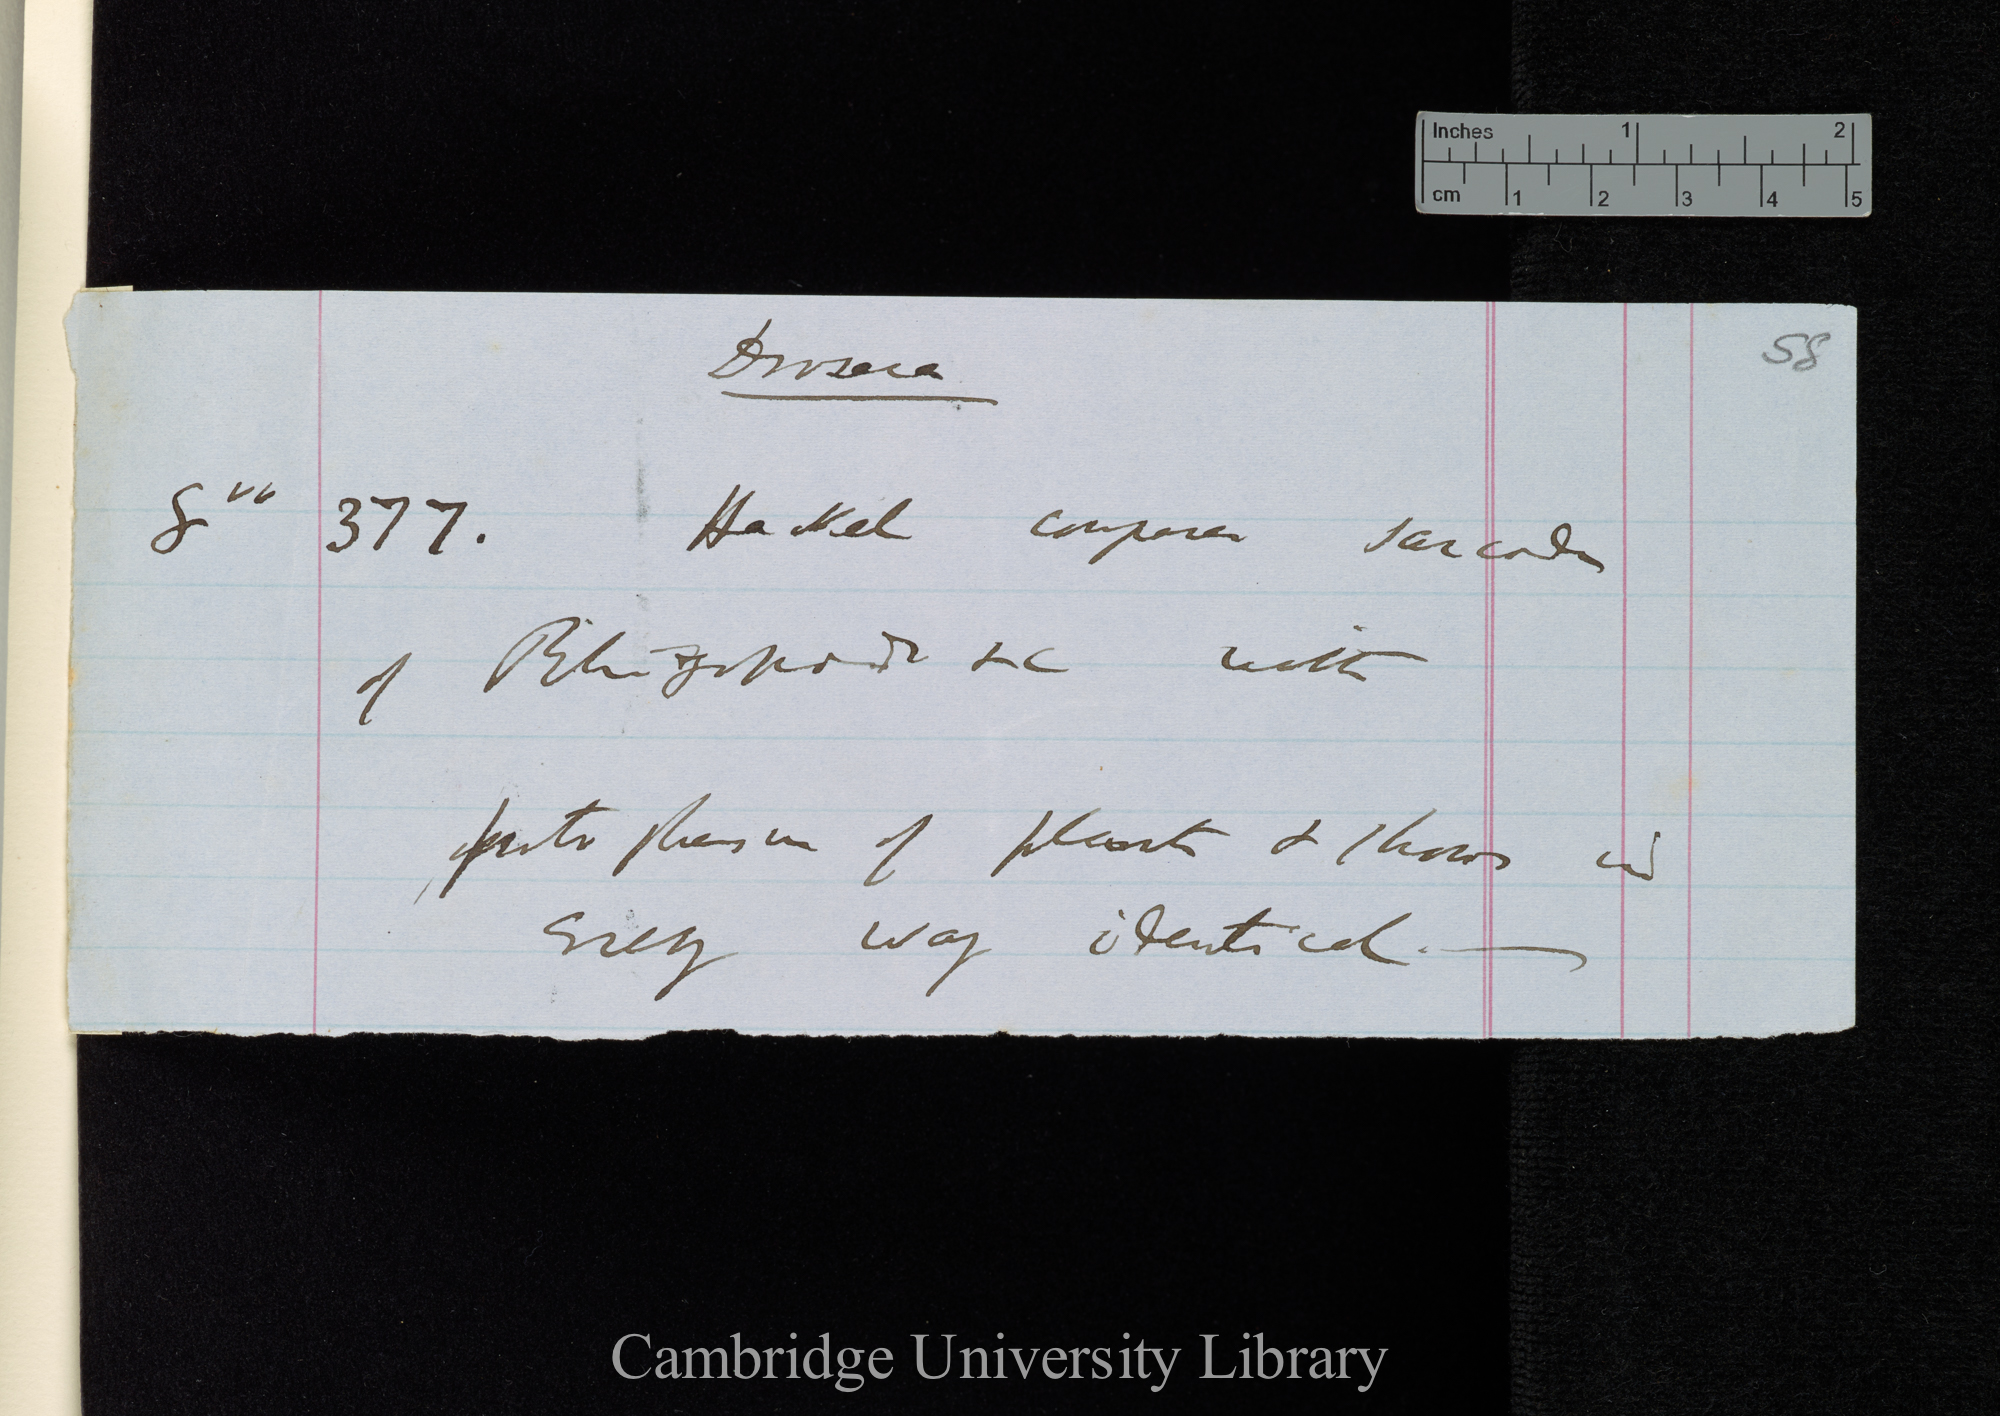 Inches 1 2
cm 1 2 3 4 5
58
Drosera
8vo 377. Hackel compares sarcode
of Rhizopods &c with
protoplasm of plants & shows is
every way identical.—
Cambridge University Library